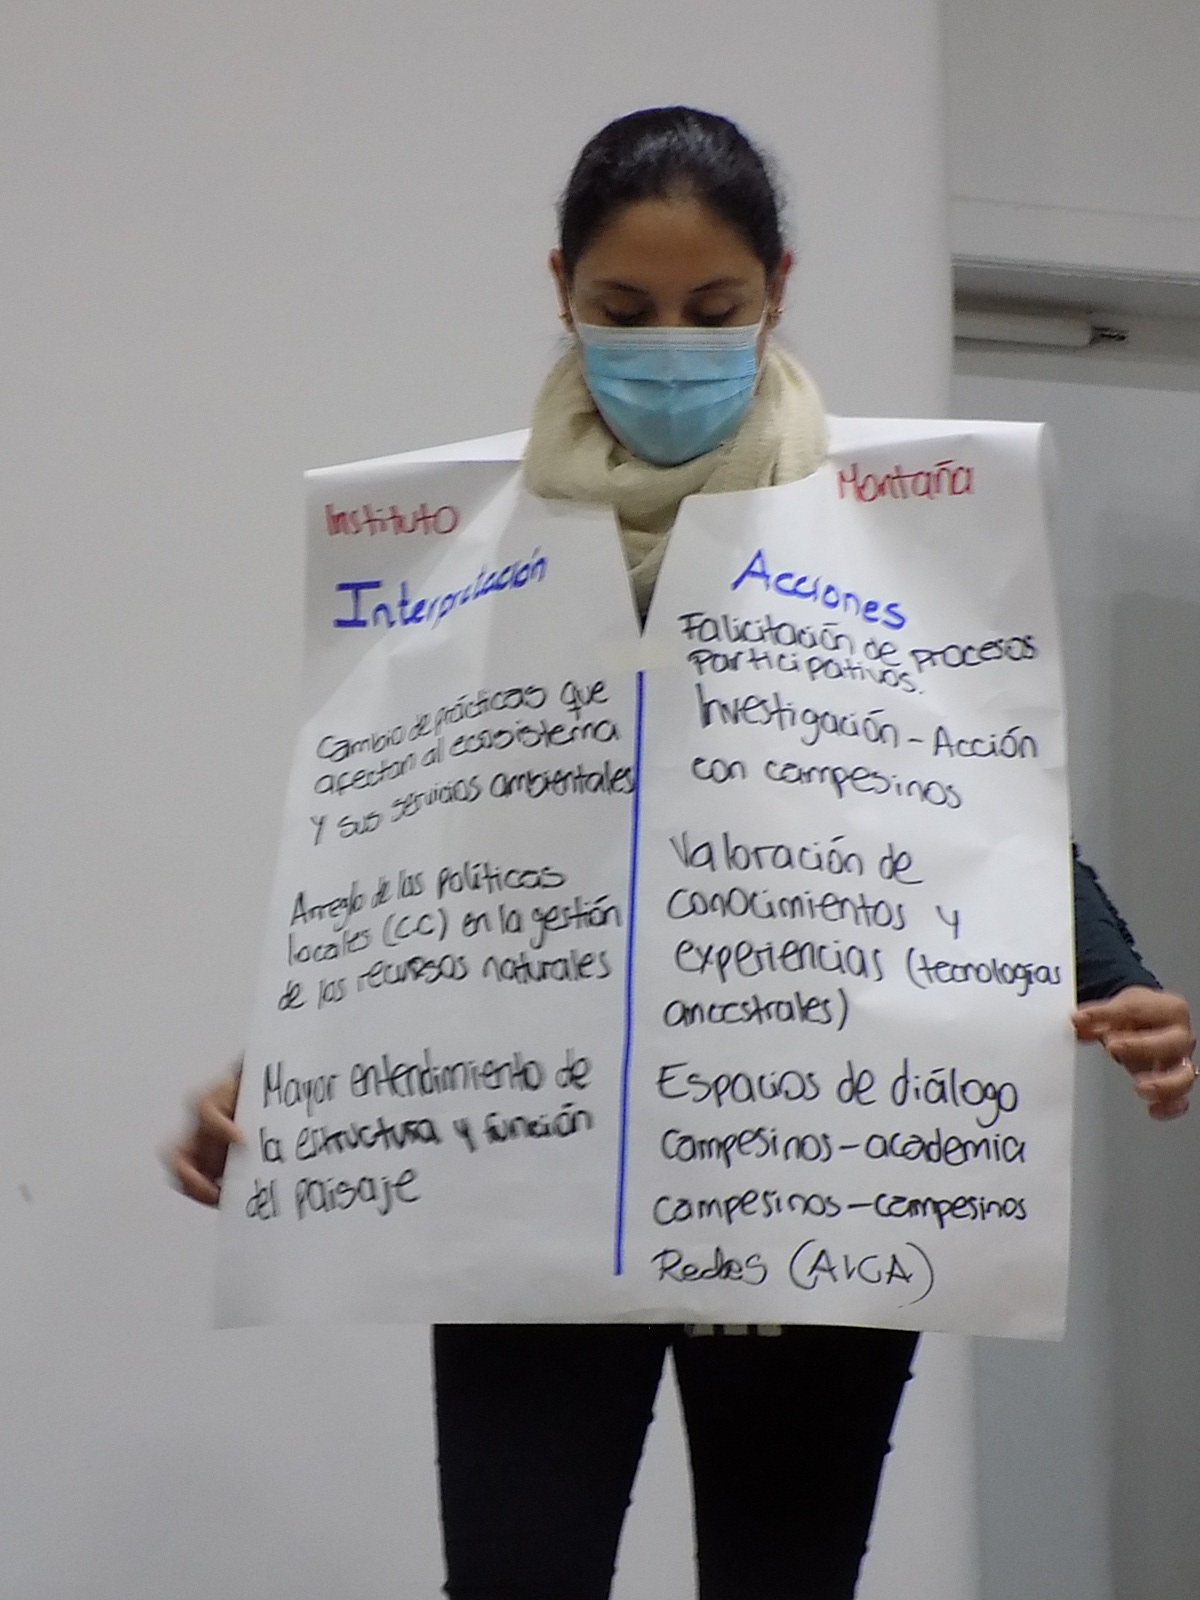 Instituto
Montaña
Interpretación
Cambio de prácticas que
afectan al ecosistema
y sus servicios ambientales
Arreglo de las políticas
locales (CC) en la gestión
de los recursos naturales
Mayor entendimiento de
la estructura y función
del paisaje
Acciones
Falicitación de procesos
participativos.
Investigación - Acción
con campesinos
Valoración de
conocimientos y
experiencias (tecnologías
ancestrales)
Espacios de diálogo
campesinos - academia
campesinos - campesinos
Redes (AICA)